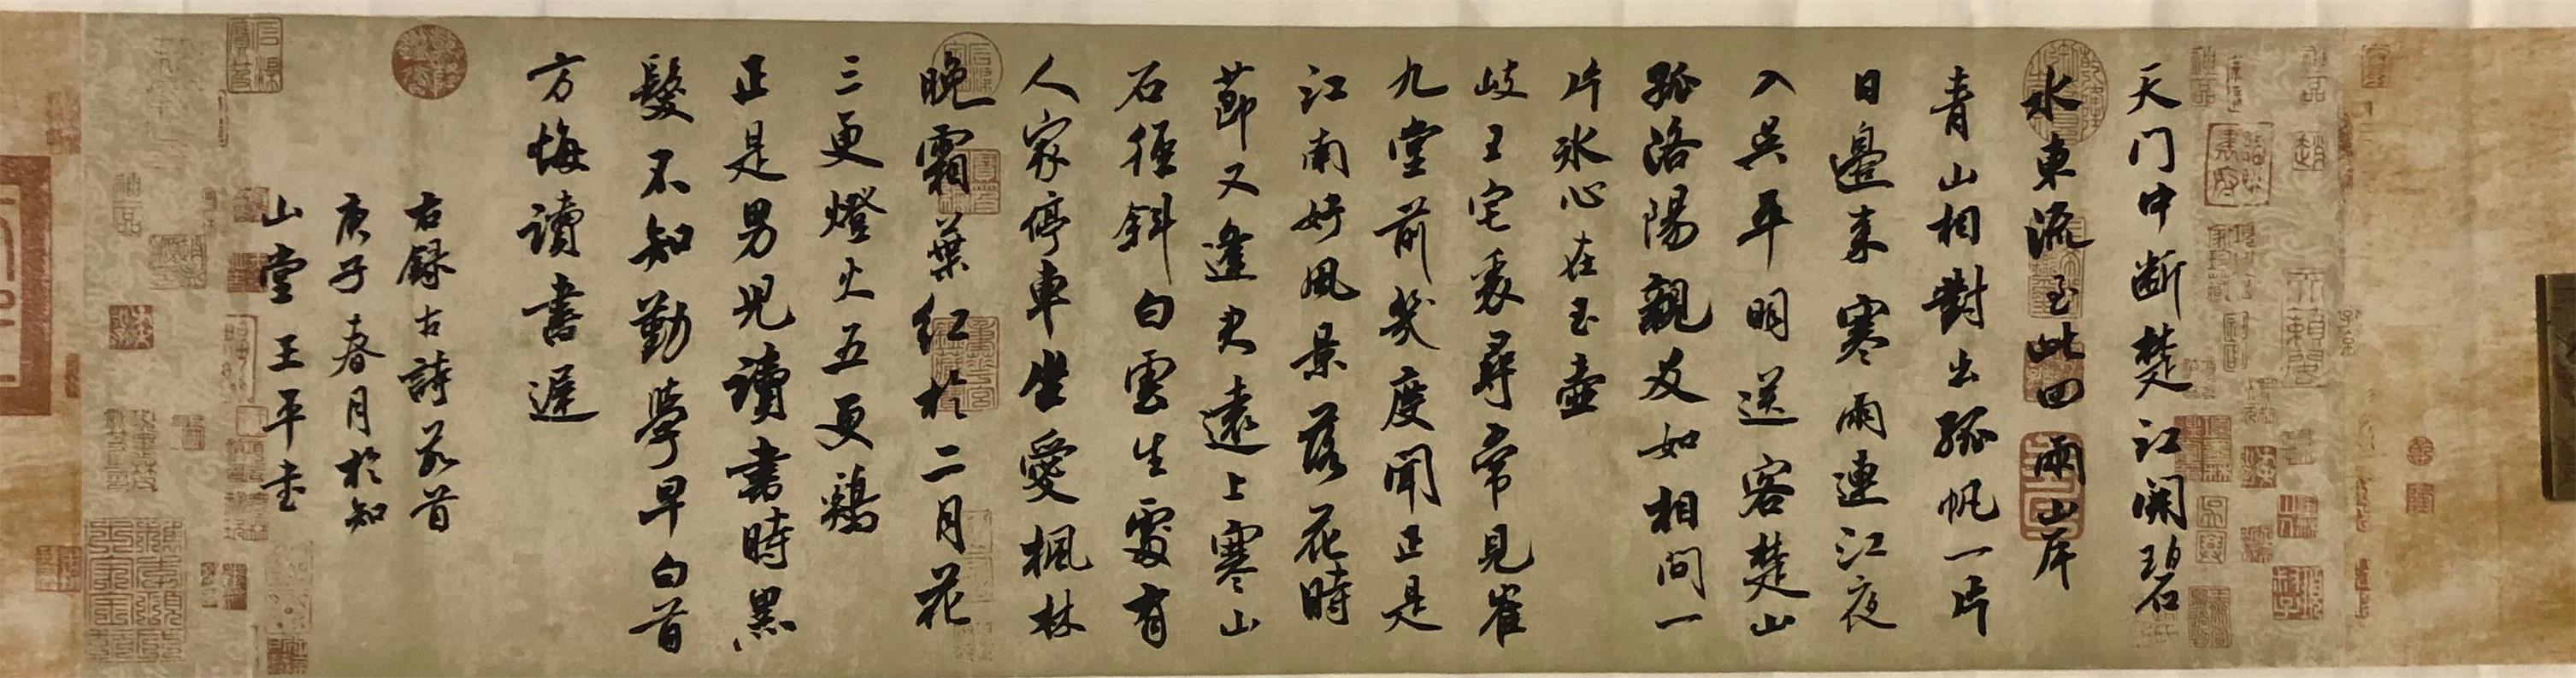 天门中断楚江開碧
水東流至此回兩岸
青山相對出孤帆一片
日邊来寒雨連江夜
入吳平明送客楚山
孤洛陽親友如相問一
片冰心在玉壺
岐王宅裏尋常見崔
九堂前幾度聞正是
江南好風景落花時
節又逢君遠上寒山
石徑斜白雲生處有
人家停車坐愛楓林
晚霜葉紅於二月花
三更燈火五更鷄
正是男兒讀書時黑
髮不知勤學早白首
方悔讀書遲
右録古詩首
庚子春月於知
山堂王平书